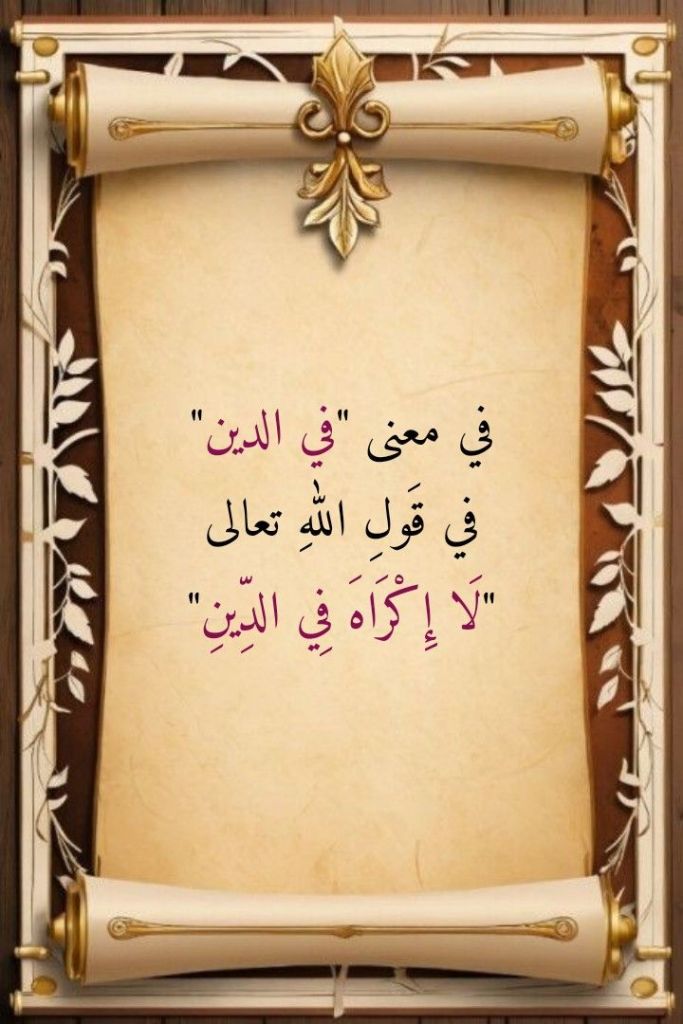 في معنى "في الدين"
في قَولِ اللّٰهِ تعالى
"لَا إِكْرَاهَ فِي الدِّينِ"